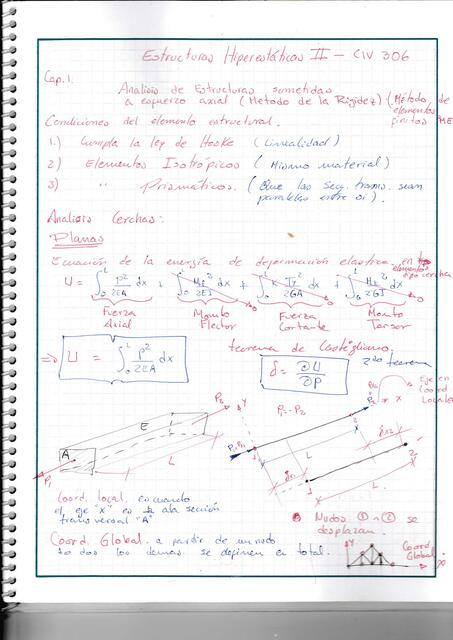 Estructuras Hiperestáticas II - CIV 306
Cap. 1.
Analisis de Estructuras sometidas
a esfuerzo axial (Metodo de la Rigidez) (Método de
elementos
finitos ME
Condiciones del elemento estructural.
1.) Cumpla la ley de Hooke (Linealidad)
2) Elementos Isotrópicos (Mismo material)
3) " Prismáticos. (Que las secc. transv. sean
paralelas entre si).
Analisis Cerchas:
Planas
Ecuación de la energía de deformación elastica, en
elementos
tipo cercha
U = ∫₀ᴸ P²/2EA dx + ∫₀ᴸ Mf²/2EI dx + ∫₀ᴸ dx + ∫₀ᴸ dx
Fuerza Axial
Momto Flector
Fuerza Cortante
Momto Torsor
⇒ U = ∫₀ᴸ P²/2EA dx
teorema de Castigliano.
δ = ∂U/∂P
2do teorema
Eje en
Coord
Locales
P₁ = P₂
A E L P₁ P₂
Y X
L
1 2
L
Coord. local. es cuando
el eje "x" es ⊥ a la sección
transversal "A"
Nudos ① ② se
desplazan.
Coord. Global. a partir de un nudo
todos los demas se definen en total.
Y
Coord.
Global
X